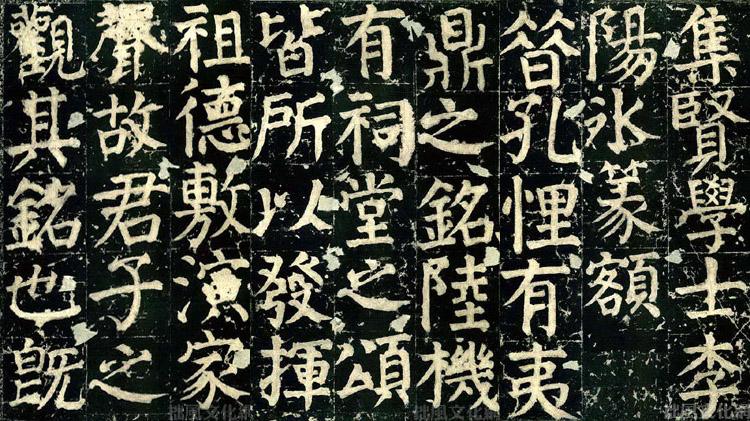 集賢學士李
陽冰篆額
昔孔悝有夷
鼎之銘陸機
有祠堂之頌
皆所以發揮
祖德敷演家
聲故君子之
觀其銘也既
拙風文化網
拙風文化網
拙風文化網